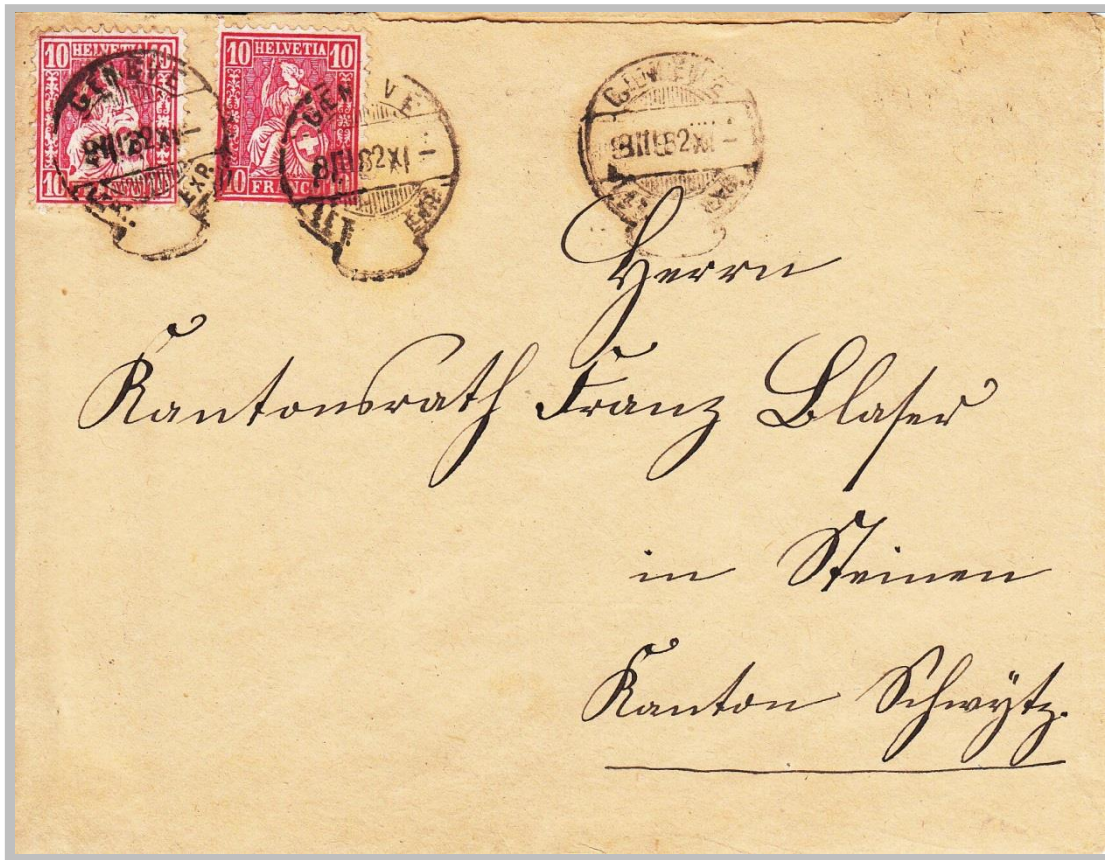 10 HELVETIA 10
10
10 HELVETIA 10
10 FRANCO 10
GENÈVE
EXP.
GENÈVE
8 III 82 XI
EXP
GENÈVE
8 III 82 XI
Herrn
Kantonsrath Franz Blaser
in Steinen
Kanton Schwÿtz.